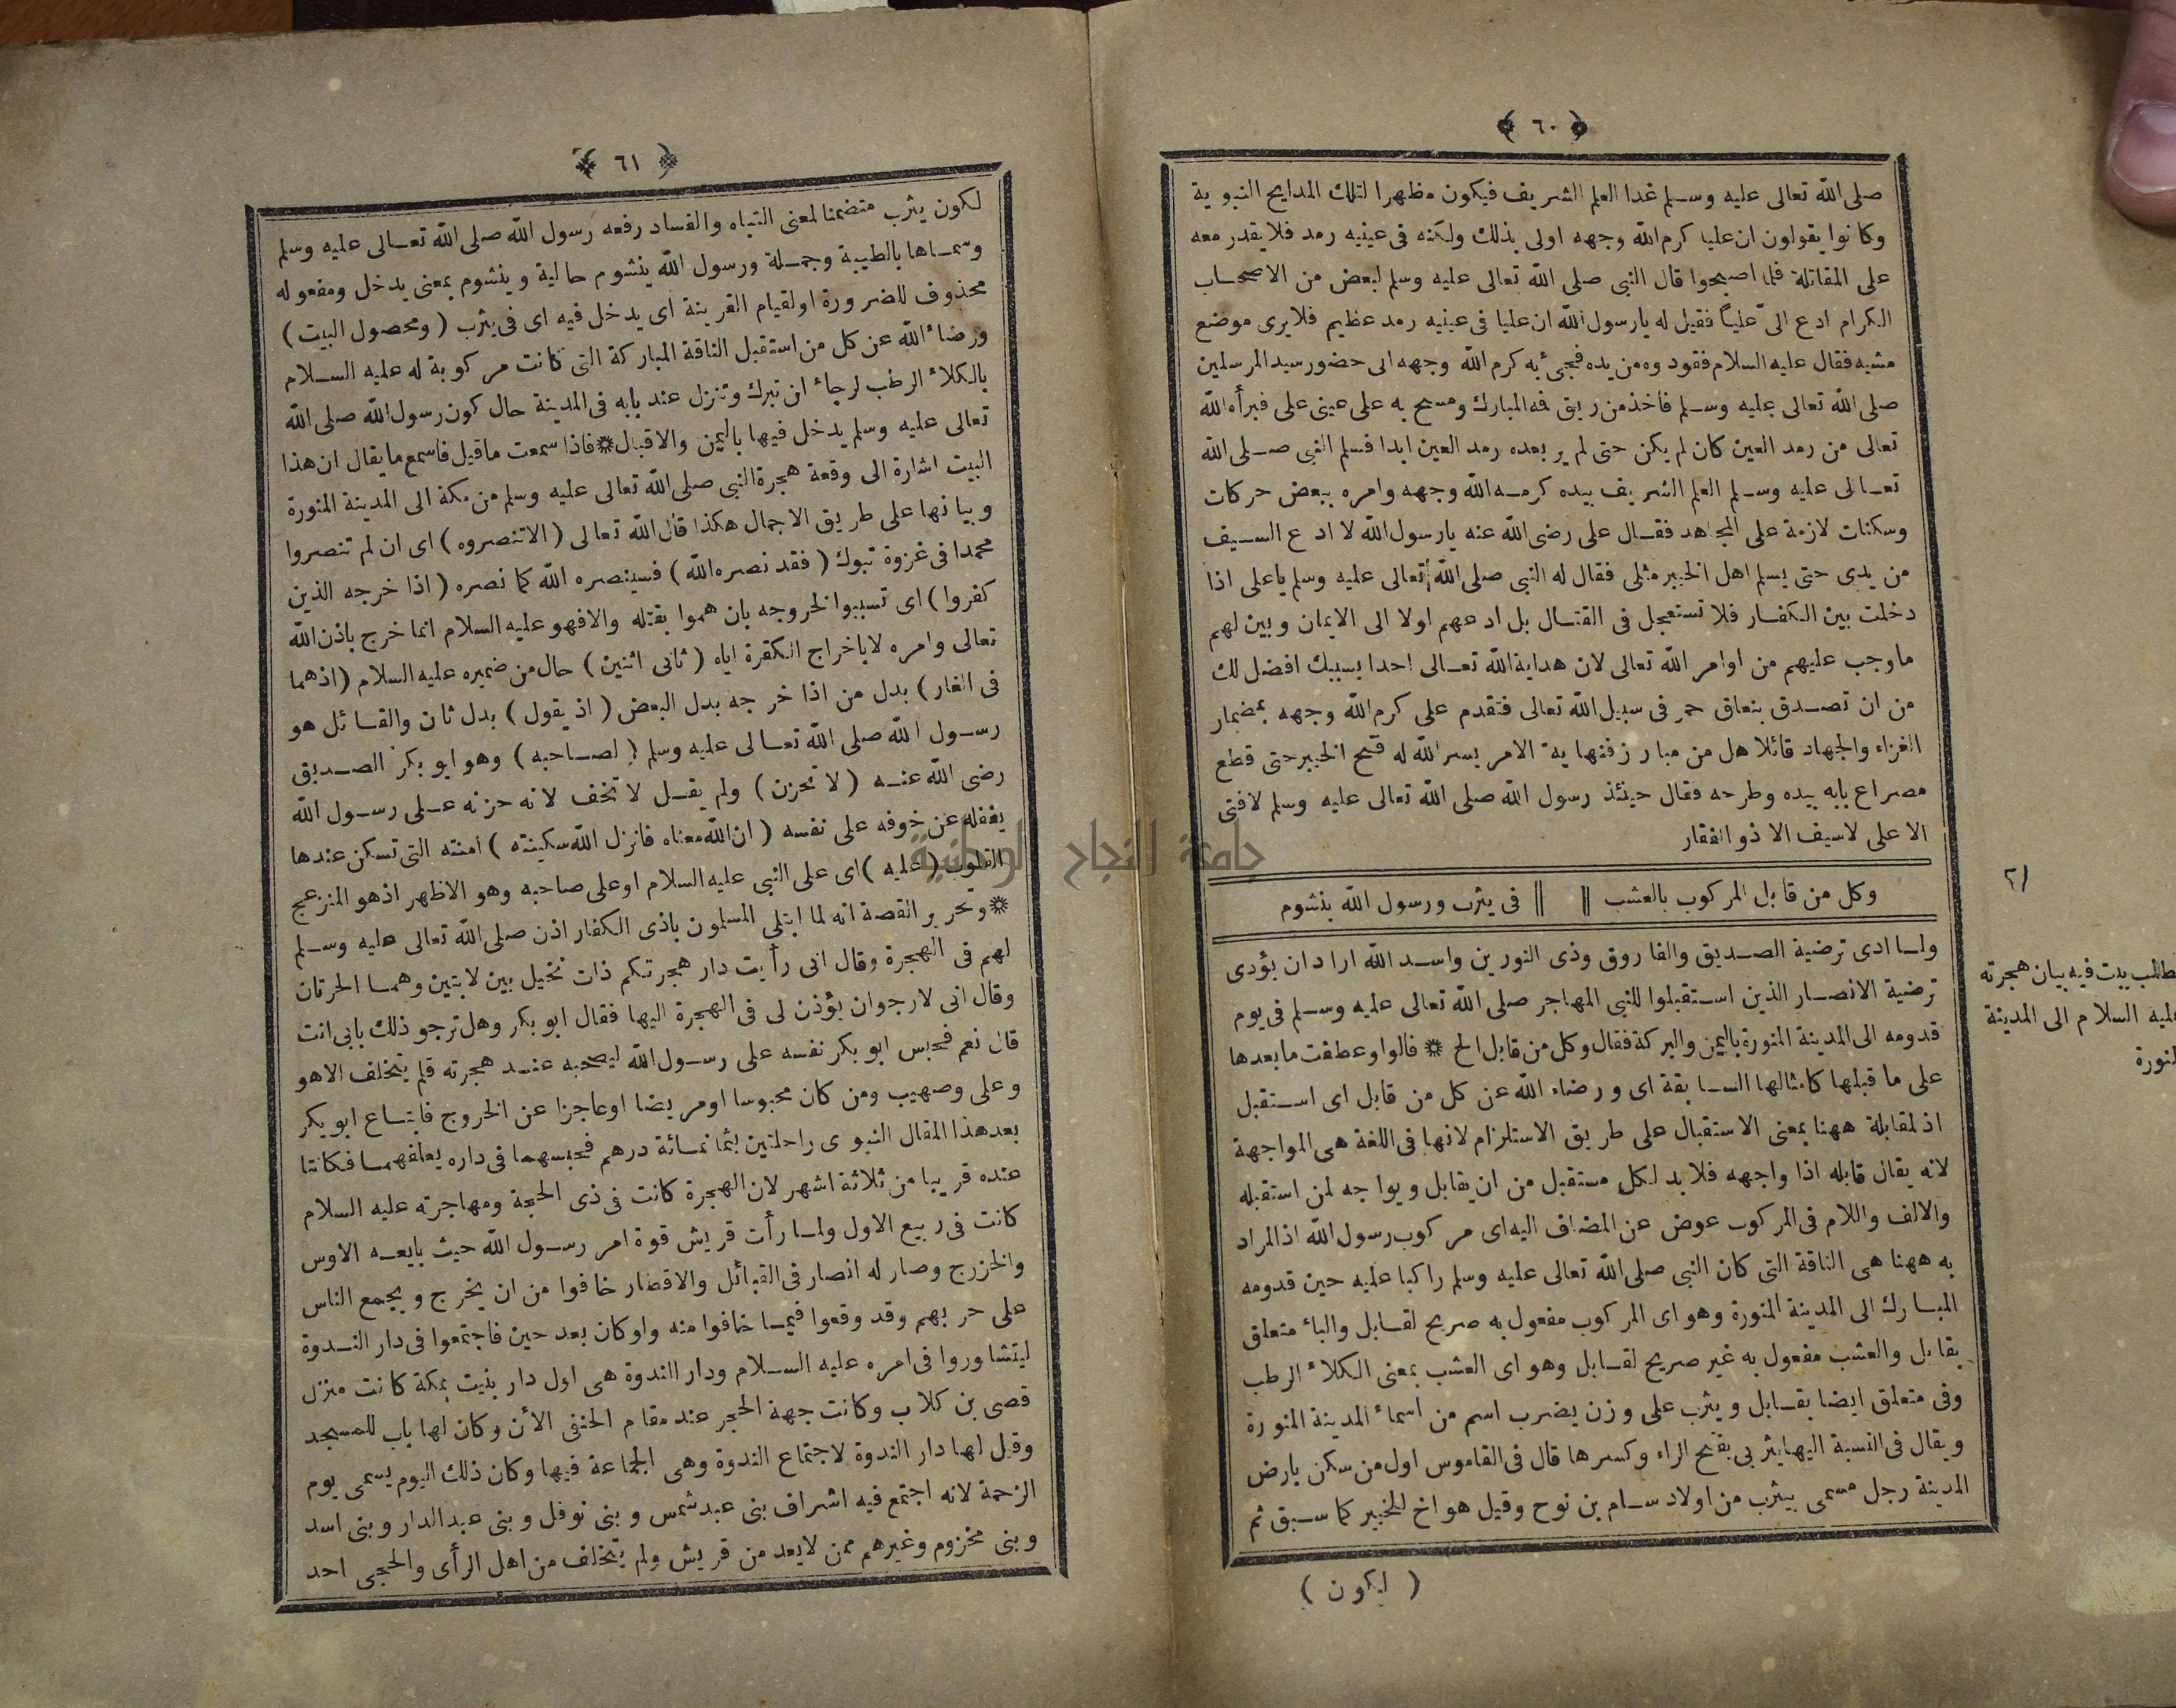 ﴿ ٦٠ ﴾
صلى الله تعالى عليه وسلم غدا العلم الشريف فيكون مظهرا لتلك المدايح النبوية
وكانوا يقولون ان عليا كرم الله وجهه اولى بذلك ولكنه فى عينيه رمد فلا يقدر معه
على المقاتلة فلما اصبحوا قال النبى صلى الله تعالى عليه وسلم لبعض من الاصحاب
الكرام ادع الىّ علياً فقيل له يارسول الله ان عليا فى عينيه رمد عظيم فلا يرى موضع
مشيه فقال عليه السلام فقودوه من يده فجىء به كرم الله وجهه الى حضور سيد المرسلين
صلى الله تعالى عليه وسلم فاخذ من ريق فه المبارك ومسح به على عينى على فبرأه الله
تعالى من رمد العين كان لم يكن حتى لم ير بعده رمد العين ابدا فسلم النبى صلى الله
تعالى عليه وسلم العلم الشريف بيده كرمه الله وجهه وامره ببعض حركات
وسكنات لازمة على المجاهد فقال على رضى الله عنه يارسول الله لا ادع السيف
من يدى حتى يسلم اهل الخيبر مثلى فقال له النبى صلى الله تعالى عليه وسلم ياعلى اذا
دخلت بين الكفار فلا تستعجل فى القتال بل ادعهم اولا الى الايمان وبين لهم
ماوجب عليهم من اوامر الله تعالى لان هداية الله تعالى احدا بسببك افضل لك
من ان تصدق بنعاق حمر فى سبيل الله تعالى فتقدم على كرم الله وجهه بمضمار
الغزاء والجهاد قائلا هل من مبارز فنهاية الامر يسر الله له فتح الخيبر حتى قطع
مصراع بابه بيده وطرحه فقال حينئذ رسول الله صلى الله تعالى عليه وسلم لافتى
الا على لاسيف الا ذو الفقار
وكل من قابل المركوب بالعشب ‖ ‖ فى يثرب ورسول الله ينشوم
ولما ادى ترضية الصديق والفاروق وذى النورين واسد الله اراد ان يؤدى
ترضية الانصار الذين استقبلوا للنبى المهاجر صلى الله تعالى عليه وسلم فى يوم
قدومه الى المدينة المنورة باليمن والبركة فقال وكل من قابل الخ * فالوا وعطفت مابعدها
على ما قبلها كامثالها السابقة اى ورضاء الله عن كل من قابل اى استقبل
اذ لمقابلة ههنا بمعنى الاستقبال على طريق الاستلزام لانها فى اللغة هى المواجهة
لانه يقال قابله اذا واجهه فلا بد لكل مستقبل من ان يقابل ويواجه لمن استقبله
والالف واللام فى المركوب عوض عن المضاف اليه اى مركوب رسول الله اذ المراد
به ههنا هى الناقة التى كان النبى صلى الله تعالى عليه وسلم راكبا عليه حين قدومه
المبارك الى المدينة المنورة وهو اى المركوب مفعول به صريح لقابل والباء متعلق
بقابل والعشب مفعول به غير صريح لقابل وهو اى العشب بمعنى الكلاء الرطب
وفى متعلق ايضا بقابل ويثرب على وزن يضرب اسم من اسماء المدينة المنورة
ويقال فى النسبة اليها يثربى بفتح الراء وكسرها قال فى القاموس اول من سكن بارض
المدينة رجل مسمى بيثرب من اولاد سام بن نوح وقيل هو اخ للخيبر كما سبق ثم
( لكون )
٢١
مطلب بيت فيه بيان هجرته
عليه السلام الى المدينة
المنورة
﴿ ٦١ ﴾
لكون يثرب متضمنا لمعنى التباه والفساد رفعه رسول الله صلى الله تعالى عليه وسلم
وسماها بالطيبة وجملة ورسول الله ينشوم حالية وينشوم بمعنى يدخل ومفعوله
محذوف للضرورة اولقيام القرينة اى يدخل فيه اى فى يثرب ( ومحصول البيت )
ورضاء الله عن كل من استقبل الناقة المباركة التى كانت مركوبة له عليه السلام
بالكلاء الرطب لرجاء ان تبرك وتنزل عند بابه فى المدينة حال كون رسول الله صلى الله
تعالى عليه وسلم يدخل فيها باليمن والاقبال * فاذا سمعت ماقيل فاسمع مايقال ان هذا
البيت اشارة الى وقعة هجرة النبى صلى الله تعالى عليه وسلم من مكة الى المدينة المنورة
وبيانها على طريق الاجمال هكذا قال الله تعالى ( الاتنصروه ) اى ان لم تنصروا
محمدا فى غزوة تبوك ( فقد نصره الله ) فسينصره الله كما نصره ( اذا خرجه الذين
كفروا ) اى تسببوا لخروجه بان هموا بقتله والافهو عليه السلام انما خرج باذن الله
تعالى وامره لاباخراج الكفرة اياه ( ثانى اثنين ) حال من ضميره عليه السلام ( اذهما
فى الغار ) بدل من اذا خرجه بدل البعض ( اذ يقول ) بدل ثان والقائل هو
رسول الله صلى الله تعالى عليه وسلم ( لصاحبه ) وهو ابو بكر الصديق
رضى الله عنه ( لا تحزن ) ولم يقل لا تخف لانه حزنه على رسول الله
يغفله عن خوفه على نفسه ( ان الله معناه فانزل الله سكينته ) امنته التى تسكن عندها
القلوب ( عليه ) اى على النبى عليه السلام اوعلى صاحبه وهو الاظهر اذ هو المنزعج
* وتحرير القصة انه لما ابتلى المسلمون باذى الكفار اذن صلى الله تعالى عليه وسلم
لهم فى الهجرة وقال انى رأيت دار هجرتكم ذات نخيل بين لابتين وهما الحرتان
وقال انى لارجوان يؤذن لى فى الهجرة اليها فقال ابو بكر وهل ترجو ذلك بابى انت
قال نعم فحبس ابو بكر نفسه على رسول الله ليصحبه عند هجرته فلم يتخلف الاهو
وعلى وصهيب ومن كان محبوسا اومريضا اوعاجزا عن الخروج فابتاع ابوبكر
بعد هذا المقال النبوى راحلتين بثمانمائة درهم فحبسهما فى داره يعلفهما فكانتا
عنده قريبا من ثلاثة اشهر لان الهجرة كانت فى ذى الحجة ومهاجرته عليه السلام
كانت فى ربيع الاول ولما رأت قريش قوة امر رسول الله حيث بايعه الاوس
والخزرج وصار له انصار فى القبائل والاقطار خافوا من ان يخرج ويجمع الناس
على حربهم وقد وقعوا فيما خافوا منه ولوكان بعد حين فاجتمعوا فى دار الندوة
ليتشاوروا فى امره عليه السلام ودار الندوة هى اول دار بنيت بمكة كانت منزل
قصى بن كلاب وكانت جهة الحجر عند مقام الحنفى الأن وكان لها باب للمسجد
وقيل لها دار الندوة لاجتماع الندوة وهى الجماعة فيها وكان ذلك اليوم يسمى يوم
الزحمة لانه اجتمع فيه اشراف بنى عبد شمس وبنى نوفل وبنى عبد الدار وبنى اسد
وبنى مخزوم وغيرهم ممن لايعد من قريش ولم يتخلف من اهل الرأى والحجى احد
جامعة النجاح الوطنية